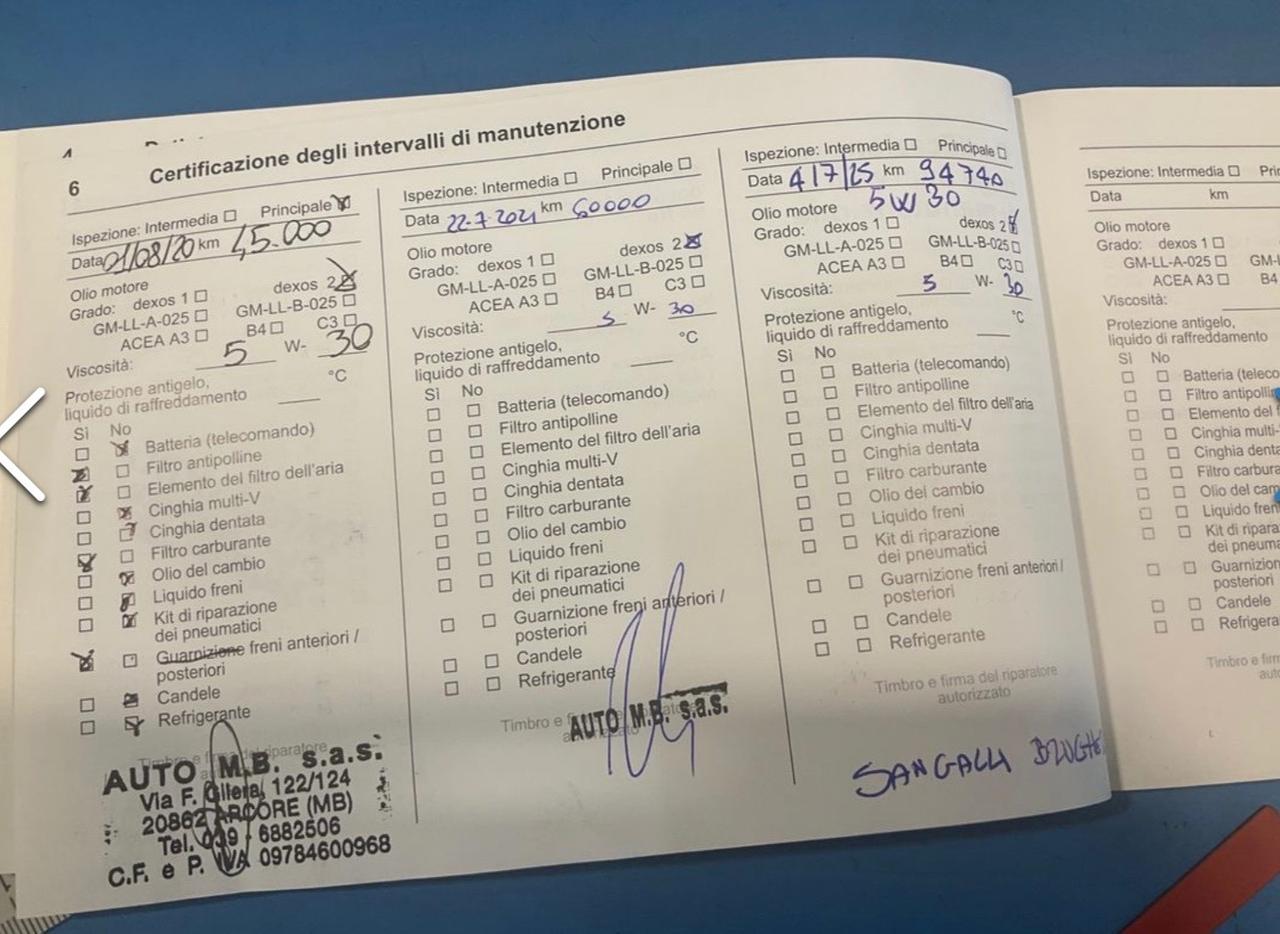 6
Certificazione degli intervalli di manutenzione
Ispezione: Intermedia Principale
Data 01/08/20 km 45.000
Olio motore
Grado: dexos 1 dexos 2
GM-LL-A-025 GM-LL-B-025
ACEA A3 B4 C3
Viscosità: 5 W- 30
Protezione antigelo,
liquido di raffreddamento °C
Sì No
Batteria (telecomando)
Filtro antipolline
Elemento del filtro dell'aria
Cinghia multi-V
Cinghia dentata
Filtro carburante
Olio del cambio
Liquido freni
Kit di riparazione
dei pneumatici
Guarnizione freni anteriori /
posteriori
Candele
Refrigerante
AUTO M.B. s.a.s.
Via F. Gilera, 122/124
20862 ARCORE (MB)
Tel. 039 - 6882506
C.F. e P. IVA 09784600968
Ispezione: Intermedia Principale
Data 22-7-2021 km 60000
Olio motore
Grado: dexos 1 dexos 2
GM-LL-A-025 GM-LL-B-025
ACEA A3 B4 C3
Viscosità: 5 W- 30
Protezione antigelo,
liquido di raffreddamento °C
Sì No
Batteria (telecomando)
Filtro antipolline
Elemento del filtro dell'aria
Cinghia multi-V
Cinghia dentata
Filtro carburante
Olio del cambio
Liquido freni
Kit di riparazione
dei pneumatici
Guarnizione freni anteriori /
posteriori
Candele
Refrigerante
Timbro e
AUTO M.B. s.a.s.
Ispezione: Intermedia Principale
Data 4/7/25 km 94740
Olio motore 5W30
Grado: dexos 1 dexos 2
GM-LL-A-025 GM-LL-B-025
ACEA A3 B4 C3
Viscosità: 5 W- 30
Protezione antigelo,
liquido di raffreddamento °C
Sì No
Batteria (telecomando)
Filtro antipolline
Elemento del filtro dell'aria
Cinghia multi-V
Cinghia dentata
Filtro carburante
Olio del cambio
Liquido freni
Kit di riparazione
dei pneumatici
Guarnizione freni anteriori /
posteriori
Candele
Refrigerante
Timbro e firma del riparatore
autorizzato
SANGALLI
Ispezione: Intermedia
Data km
Olio motore
Grado: dexos 1
GM-LL-A-025
ACEA A3 B4
Viscosità:
Protezione antigelo,
liquido di raffreddamento
Sì No
Batteria
Filtro
Elemento del
Cinghia multi-
Cinghia
Filtro
Olio del
Liquido
Kit di
dei
posteriori
Candele
Timbro e